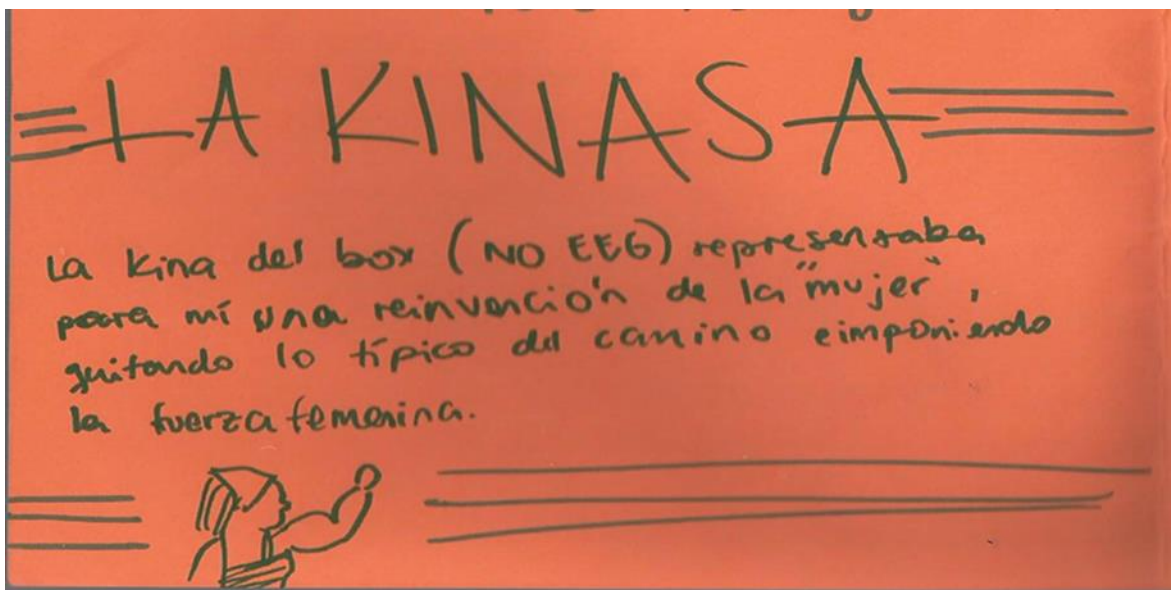 LA KINASA
La Kina del box (NO EEG) representaba
para mí una reinvención de la "mujer",
quitando lo típico del camino e imponiendo
la fuerza femenina.